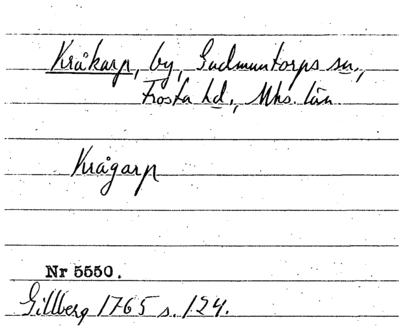 Kråkarp, by, Gudmuntorps sn.,
Frosta hd., Mhs. län
Krågarp
Nr 5550.
Gillberg 1765 s. 124.